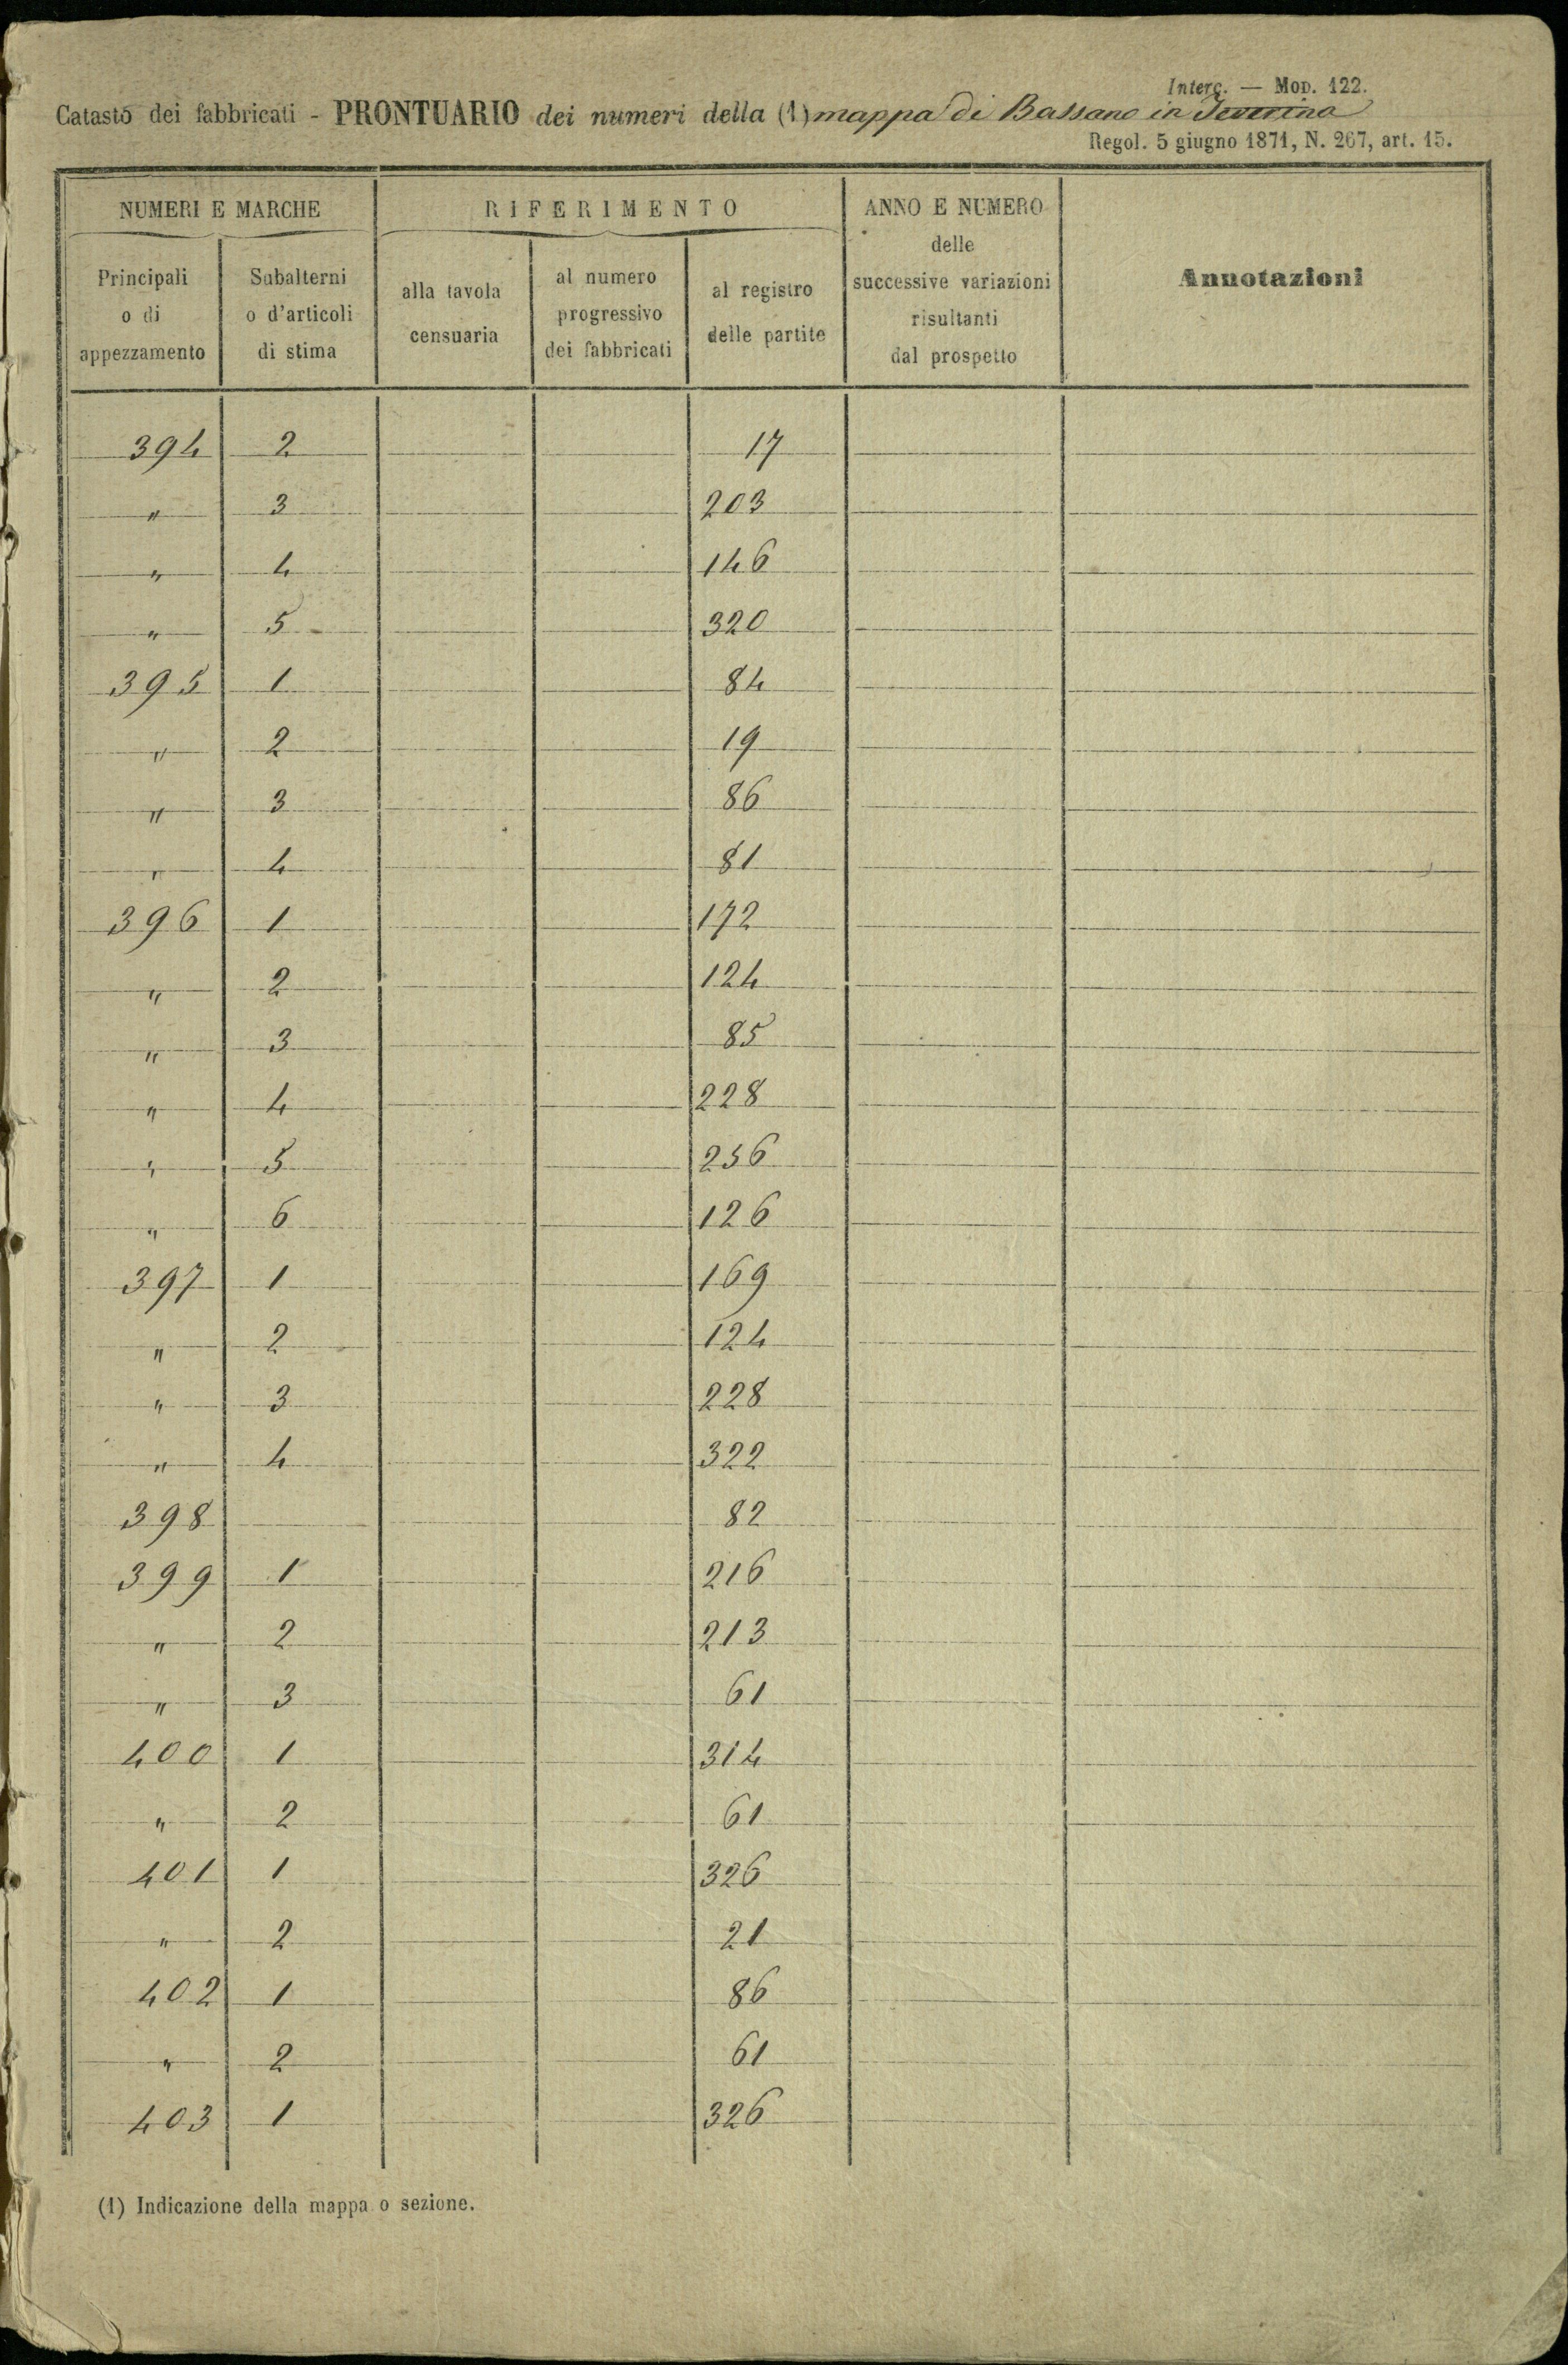 Interc. — Mod. 122.
Catasto dei fabbricati - PRONTUARIO dei numeri della (1) mappa di Bassano in Teverina
Regol. 5 giugno 1871, N. 267, art. 15.
NUMERI E MARCHE
Principali o di appezzamento
Subalterni o d'articoli di stima
RIFERIMENTO
alla tavola censuaria
al numero progressivo dei fabbricati
al registro delle partite
ANNO E NUMERO delle successive variazioni risultanti dal prospetto
Annotazioni
394 2 17
" 3 203
" 4 146
" 5 320
395 1 84
" 2 19
" 3 86
" 4 81
396 1 172
" 2 124
" 3 85
" 4 228
" 5 256
" 6 126
397 1 169
" 2 124
" 3 228
" 4 322
398 82
399 1 216
" 2 213
" 3 61
400 1 314
" 2 61
401 1 326
" 2 21
402 1 86
" 2 61
403 1 326
(1) Indicazione della mappa o sezione.